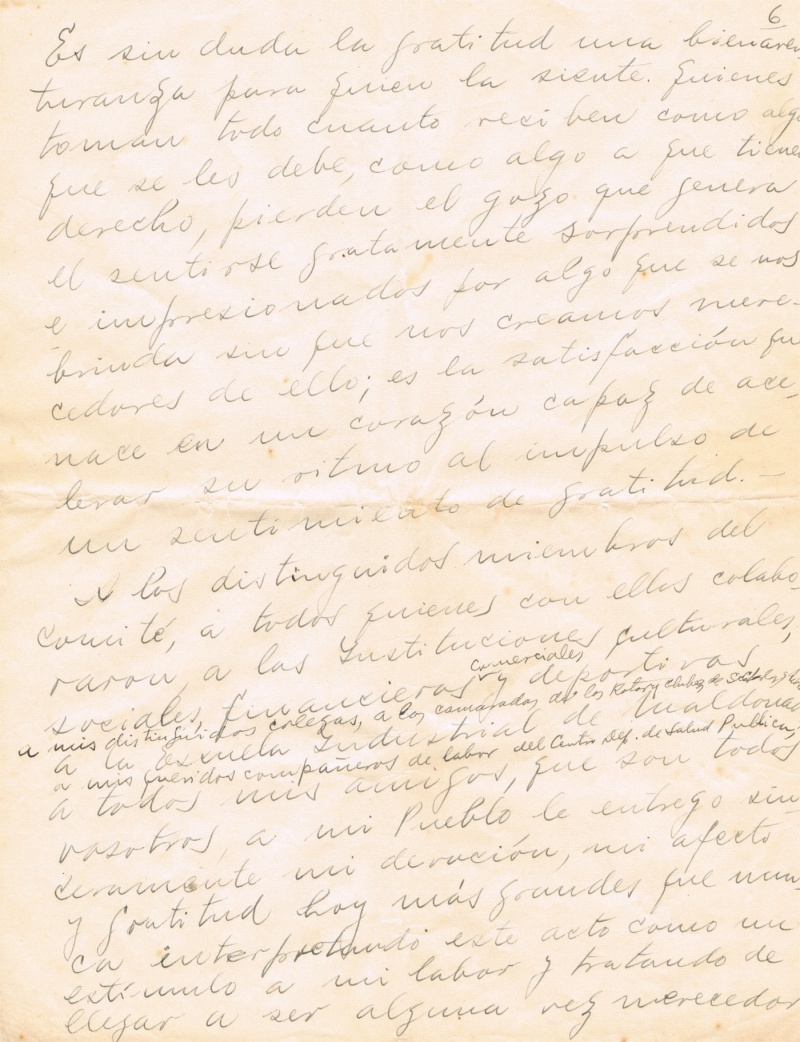 6
Es sin duda la gratitud una bienaven
turanza para quien la siente. Quienes
toman todo cuanto reciben como algo
que se les debe, como algo a que tienen
derecho, pierden el gozo que genera
el sentirse gratamente sorprendidos
e impresionados por algo que se nos
brinda sin que nos creamos mere-
cedores de ello; es la satisfacción que
nace en un corazón capaz de ace-
lerar su ritmo al impulso de
un sentimiento de gratitud. —
A los distinguidos miembros del
Comité, a todos quienes con ellos colabo-
raron, a las Instituciones culturales,
comerciales
sociales, financieras y deportivas,
a mis distinguidos colegas, a los camaradas de los Rotary Clubs de
a la Escuela Industrial de Maldonado
a mis queridos compañeros de labor del Centro Dep. de Salud Publica,
a todos mis amigos, que son todos
vosotros, a mi Pueblo le entrego sin-
ceramente mi devoción, mi afecto
y gratitud hoy más grandes que nun-
ca interpretando este acto como un
estímulo a mi labor y tratando de
llegar a ser alguna vez merecedor